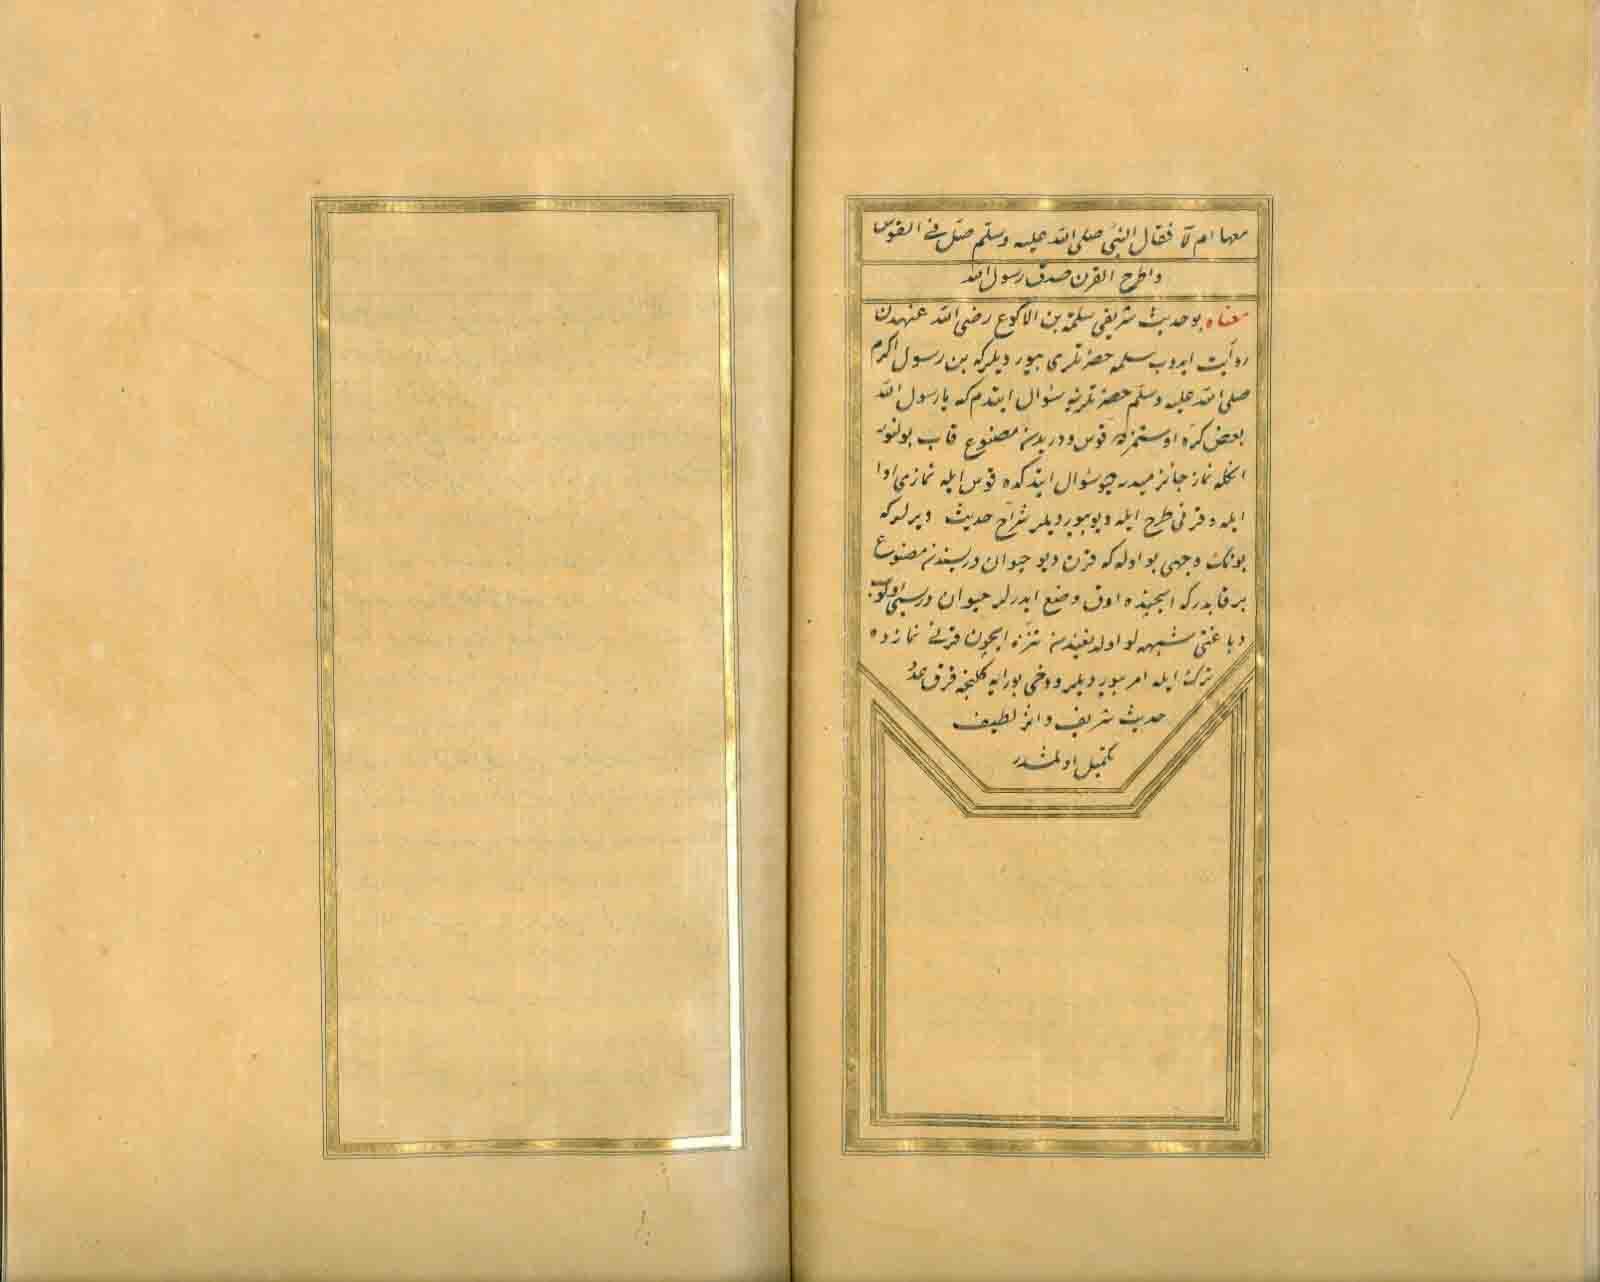 معها ام لا فقال النبي صلى الله عليه وسلم صل في القوس
واطرح القرن صدق رسول الله
معناه بو حديث شريفي سلمة بن الاكوع رضى الله عنهدن
روايت ايدوب سلمه حضرتلرى بيورديلركه بن رسول اكرم
صلى الله عليه وسلم حضرتلرينه سؤال ايتدم كه يا رسول الله
بعض كره اوستمزده قوس ودريدن مصنوع قاب بولنور
انكله نماز جائزميدر ديو سؤال ايتدكده قوس ايله نمازى ادا
ايله وقرنى طرح ايله ديو بيورديلر شراح حديث ديرلركه
بونك وجهى بو اوله كه قرن ديو حيوان دريسندن مصنوع
بر قابدركه ايچنده اوق وضع ايدرلر حيوان دريسى اولوب
دباغتى شبهه لو اولديغندن تنزه ايچون قرنى نمازده
ترك ايله امر بيورديلر ودخى بورايه كلنجه قرق عدد
حديث شريف واثر لطيف
تكميل اولمشدر